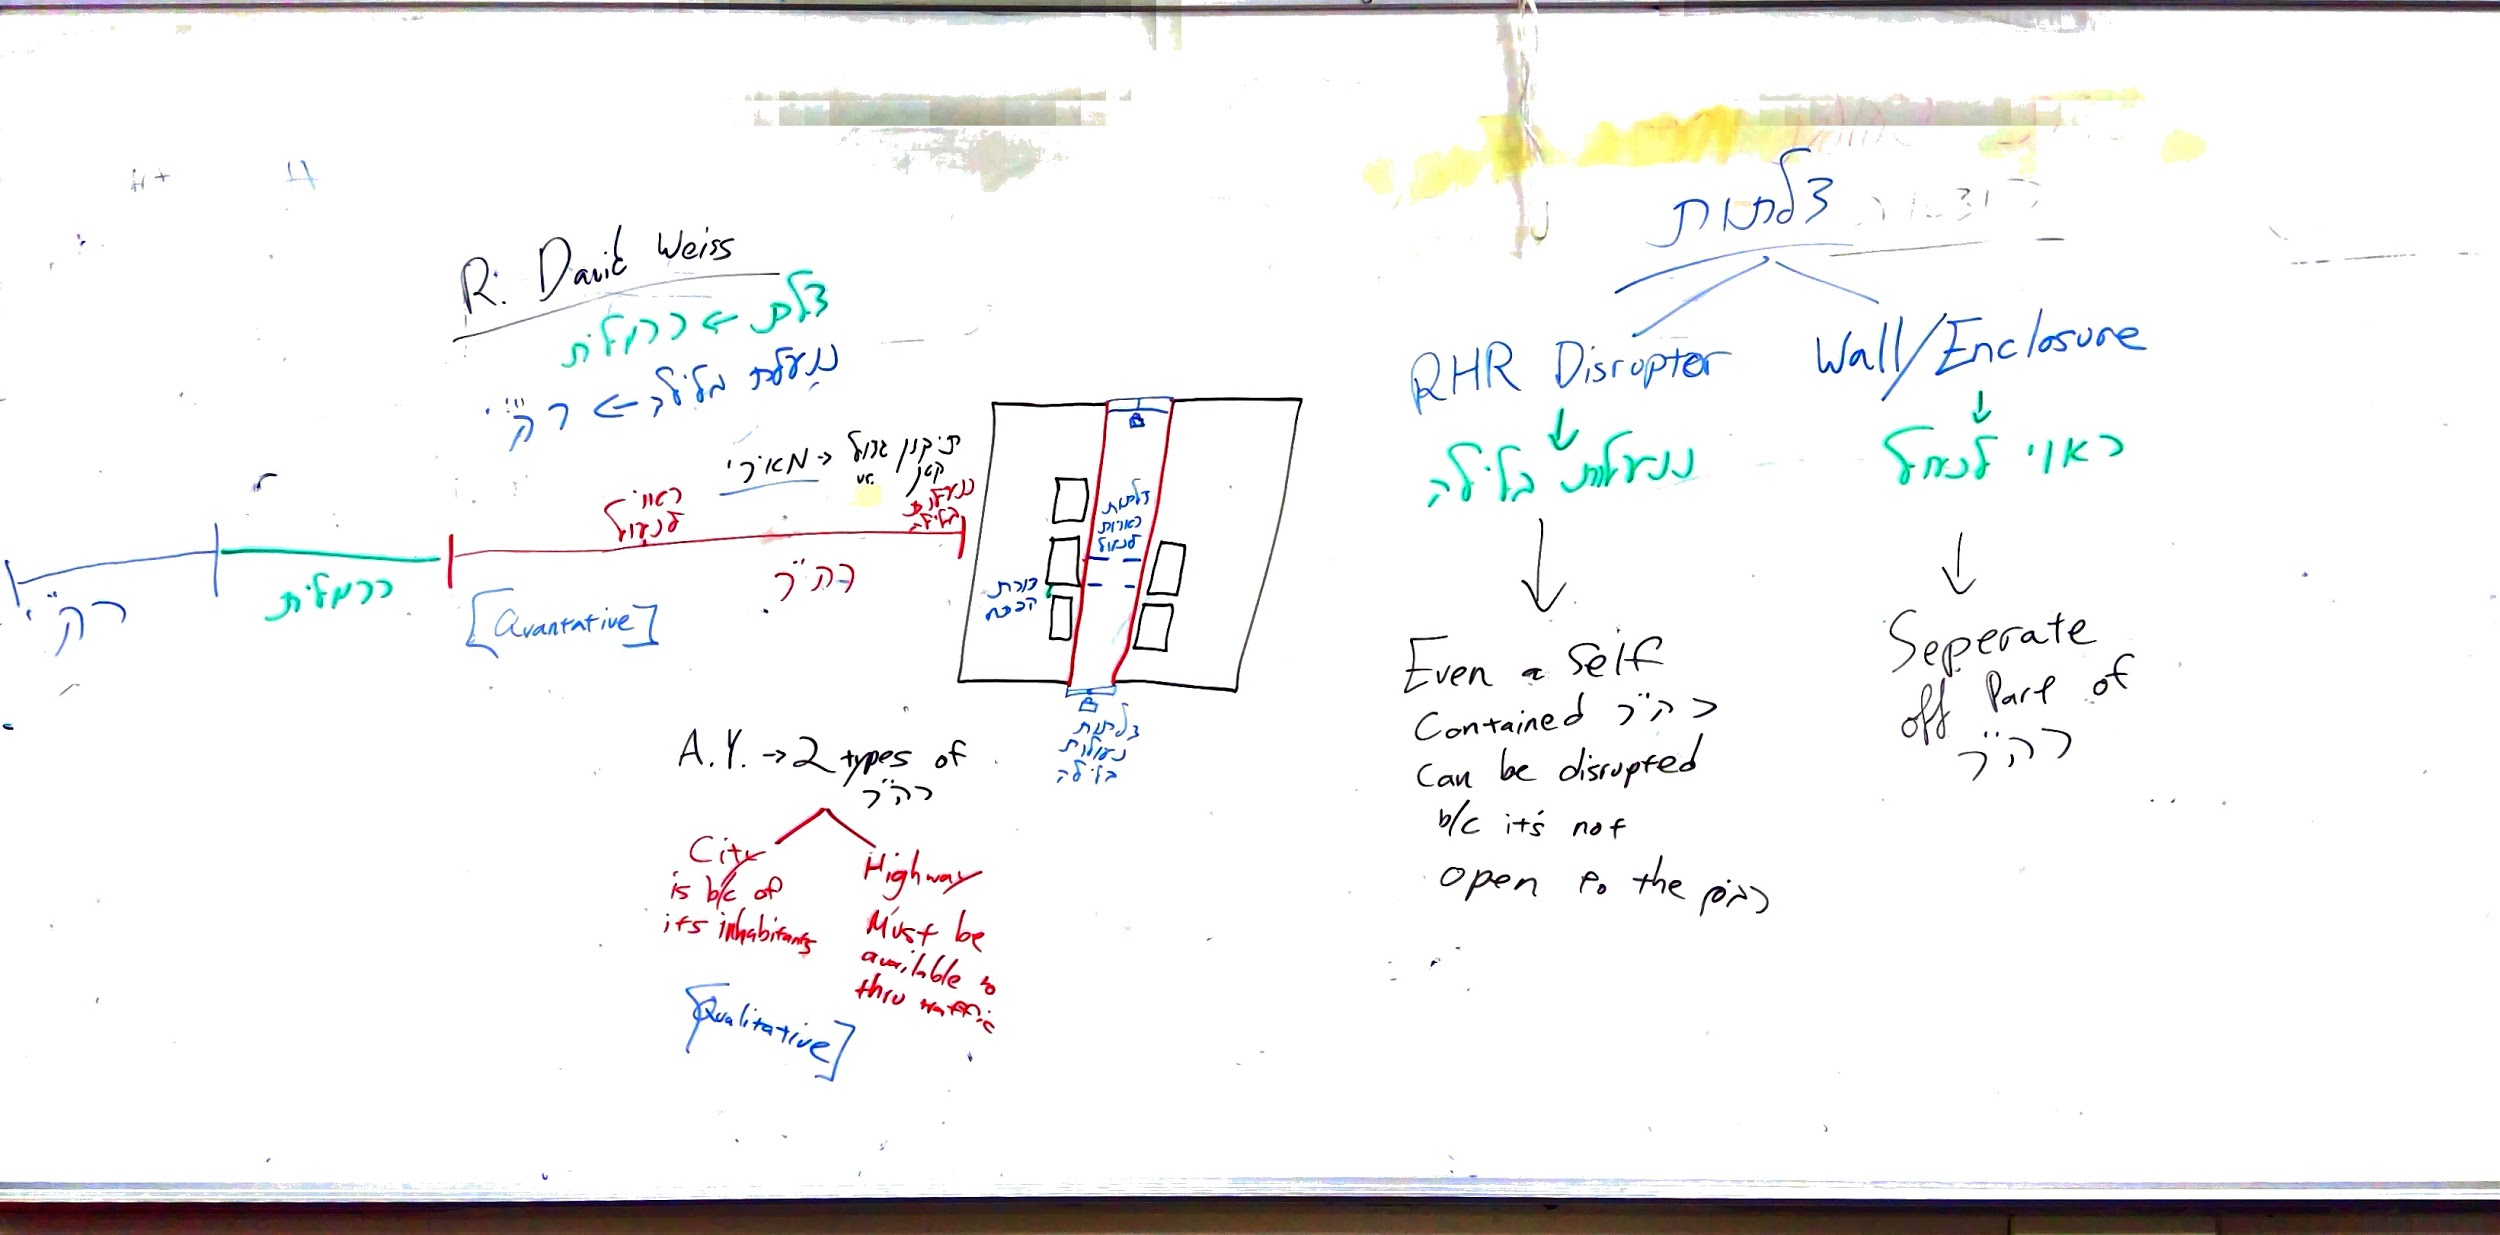 R. David Weiss
דלת → כרמלית
ננעלת בלילה → רה"ר
מאירי → תיקון גדול
vs. קטן
ראוי
לנעול
ננעלות
בלילה
רה"ר
כרמלית
רה"ר
[Quantative]
דלתות
ראויות
לנעול
דלתות
נעולות
בלילה
A.Y. → 2 types of
רה"ר
City
is b/c of
its inhabitants
Highway
Must be
available to
thru traffic
[Qualitative]
דלתות
RHR Disrupter
ננעלות בלילה
Even a self
contained רה"ר
can be disrupted
b/c it's not
open to the
Wall/Enclosure
ראוי לנעול
Seperate
off Part of
רה"ר